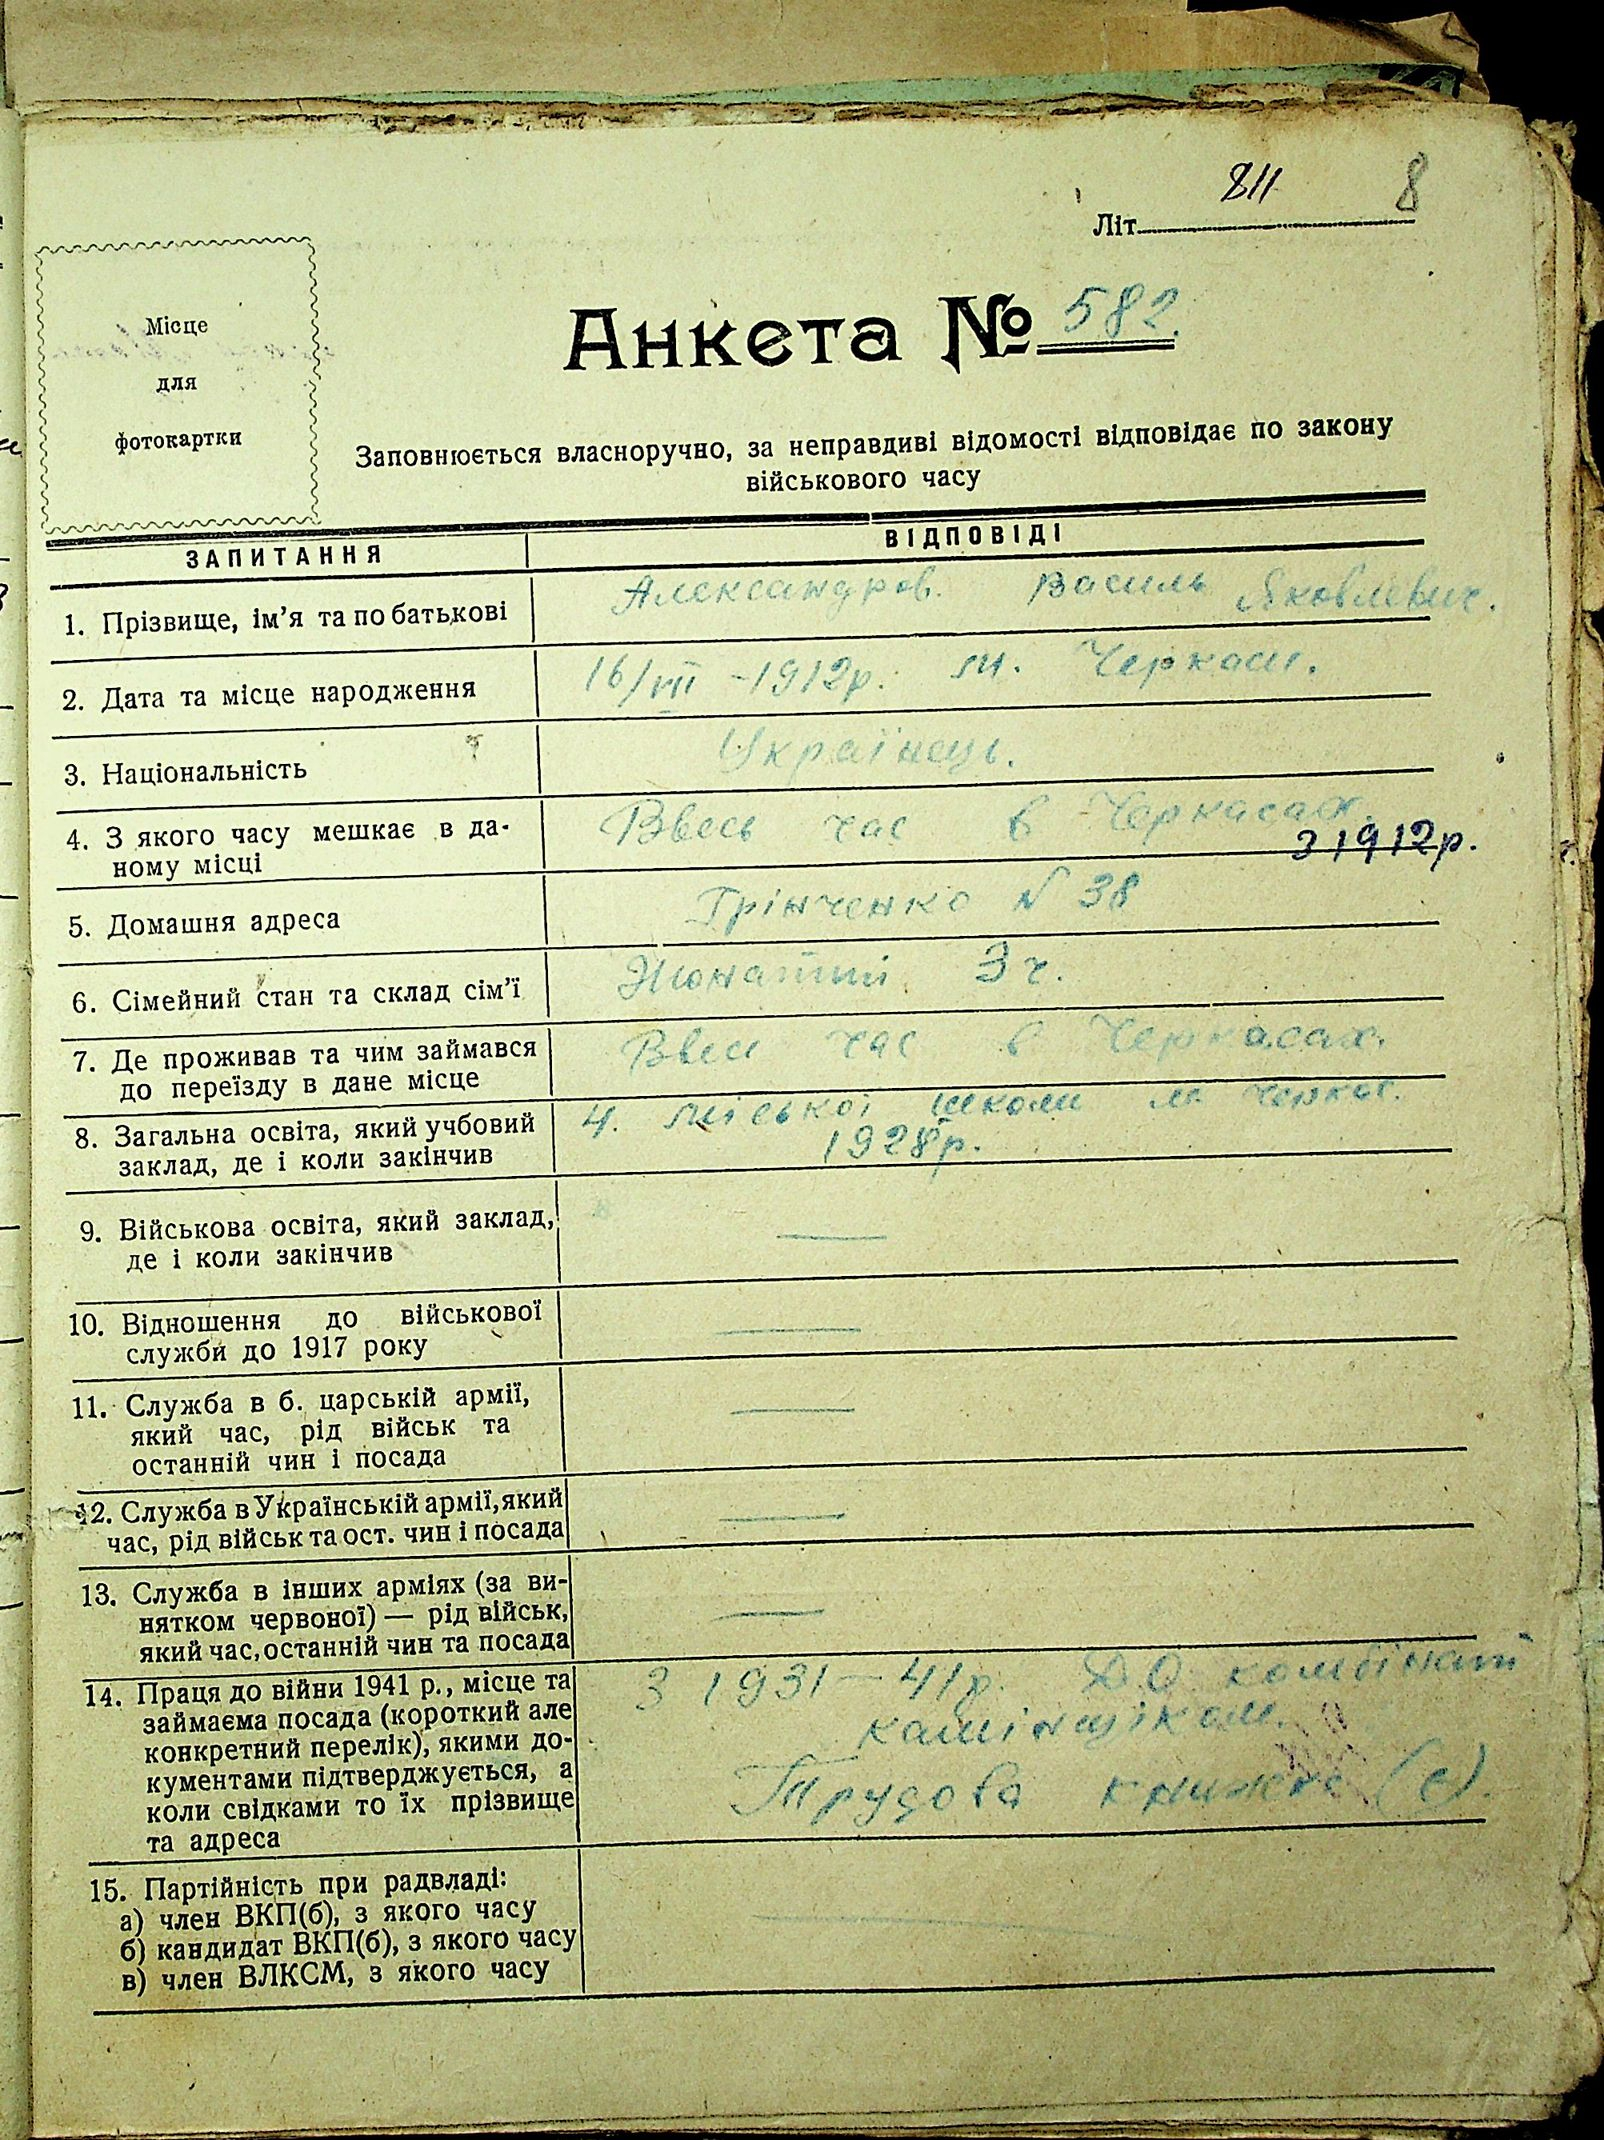 811 8
Літ
Місце
для
фотокартки
Анкета № 582.
Заповнюється власноручно, за неправдиві відомості відповідає по закону
військового часу
ЗАПИТАННЯ ВІДПОВІДІ
1. Прізвище, ім'я та по батькові Александров. Василь Яковлевич.
2. Дата та місце народження 16/VII -1912р. м. Черкаси.
3. Національність Українець.
4. З якого часу мешкає в да- Ввесь час в Черкасах.
ному місці З 1912р.
5. Домашня адреса Грінченко N 38
6. Сімейний стан та склад сім'ї Жонатий 3 ч.
7. Де проживав та чим займався Ввесь час в Черкасах.
до переїзду в дане місце
8. Загальна освіта, який учбовий 4. міської школи м. Черкас.
заклад, де і коли закінчив 1928р.
9. Військова освіта, який заклад, —
де і коли закінчив
10. Відношення до військової —
служби до 1917 року
11. Служба в б. царській армії, —
який час, рід військ та
останній чин і посада
12. Служба в Українській армії, який —
час, рід військ та ост. чин і посада
13. Служба в інших арміях (за ви- —
нятком червоної) — рід військ,
який час, останній чин та посада
14. Праця до війни 1941 р., місце та З 1931—41р. Д.О. комбінат
займаєма посада (короткий але камінщіком.
конкретний перелік), якими до-
кументами підтверджується, а Трудова книжка (е).
коли свідками то їх прізвище
та адреса
15. Партійність при радвладі: —
а) член ВКП(б), з якого часу
б) кандидат ВКП(б), з якого часу
в) член ВЛКСМ, з якого часу